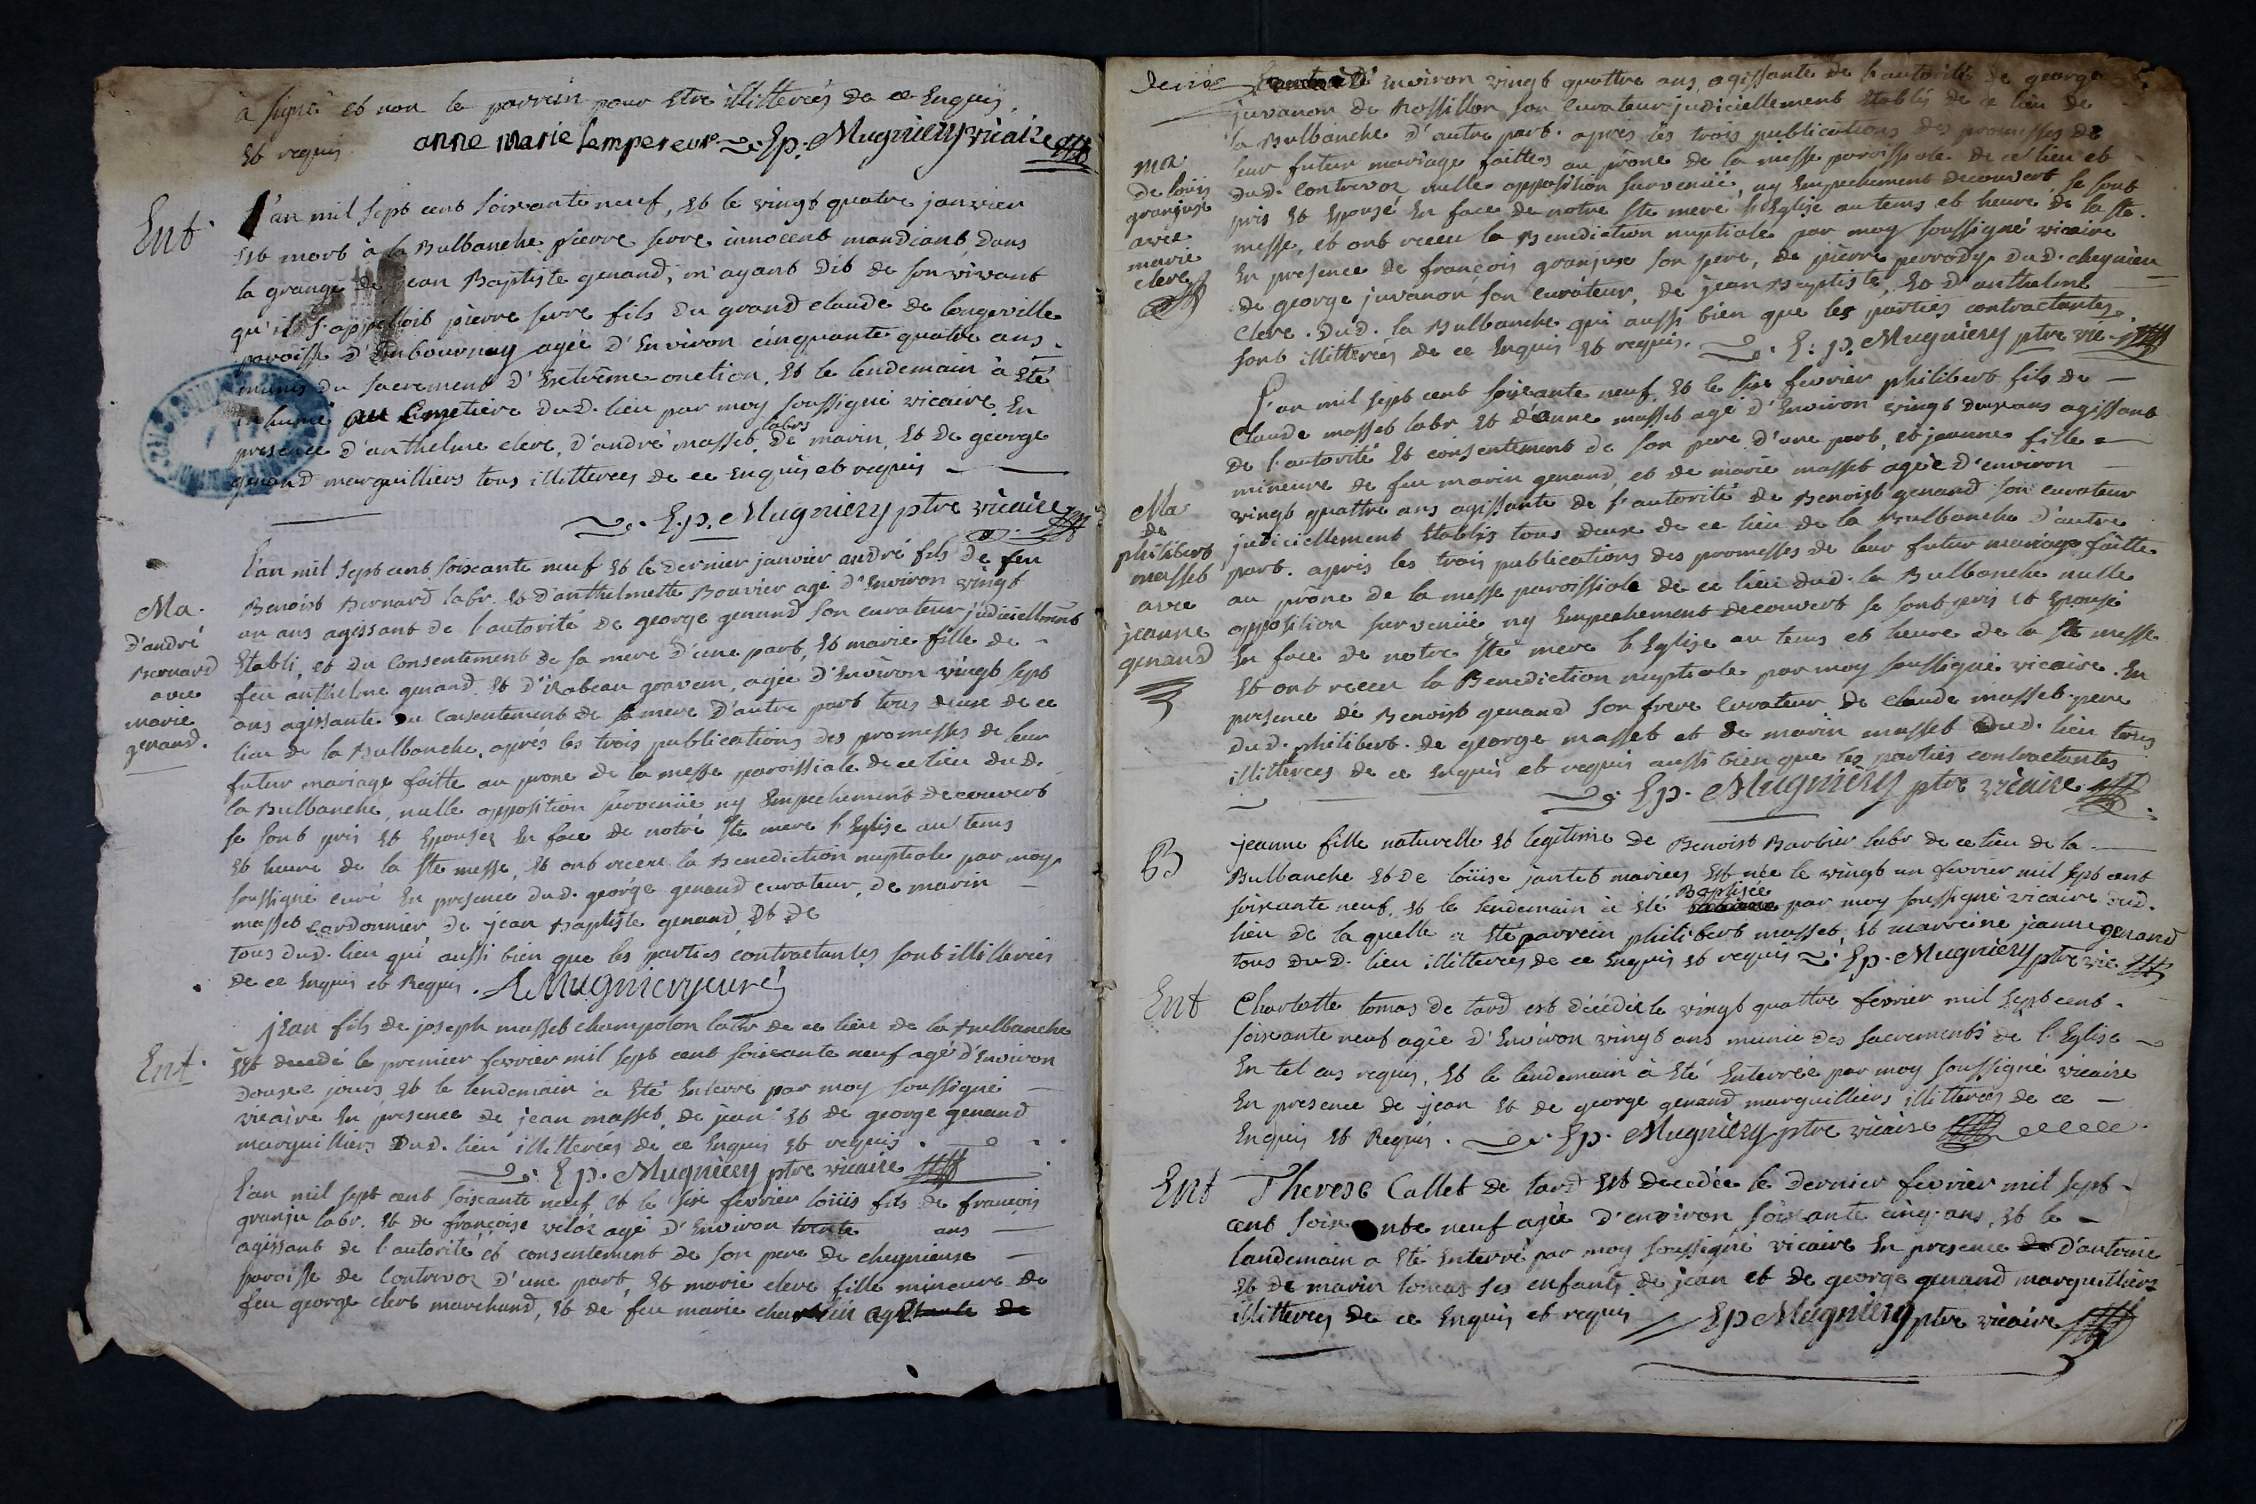 à signé et non le parrein pour etre illitterés de ce Enquis
et requis anne marie Lempereur Ep. Mugniery vicaire
Ent. L'an mil sept cent soixante neuf, et le vingt quatre janvier
est mort à la Bulbanche pierre serre innocent mandiant dans
la grange de jean Baptiste genand, m'ayant dit de son vivant
qu'il s'appelloit pierre serre fils du grand claude de longeville
paroisse d'Ambournay agée d'Environ cinquante quatre ans.
munis du sacrement d'Extrême-onction, et le lendemain à été
inhumé au Cimetiere dud. lieu par moy soussigné vicaire En
labrs
presence d'anthelme clerc, d'andré masset, de marin, et de george
genand marguilliers tous illitterees de ce enquis et requis
E.p. Mugniery ptre vicaire
Ma. d'andré Bernard avec marie genand.
L'an mil sept cent soixante neuf et le dernier janvier andré fils de feu
Benoist Bernard labr. et d'anthelmette Bouvier agé d'Environ vingt
un ans agissant de l'autorité de george genand son curateur judiciellement
Etabli, et du Consentement de sa mere d'une part, et marie fille de
feu anthelme genand et d'izabeau gravein, agée d'Environ vingt sept
ans agissante du Consentement de sa mere d'autre part tous deux de ce
lieu de la Bulbanche, aprés les trois publications des promesses de leur
futur mariage faitte au prone de la messe paroissiale de ce lieu dud.
la Bulbanche, nulle opposition survenüe ny Empechement decouvert
se sont pris et Epousez En face de notre Ste mere l'Eglise au tems
et heure de la Ste messe, et ont receu la Benediction nuptiale par moy
soussigné curé En presence dud. george genand curateur, de marin
masset Cordonnier de jean Baptiste genand, et de
tous dud. lieu qui aussi bien que les parties contractantes sont illitterées
de ce Enquis et Requis. AMugniery curé
Ent. jean fils de joseph masset champolon labr de ce lieu de la Bulbanche
est decedé le premier fevrier mil sept cent soixante neuf agé d'Environ
douze jours et le lendemain à Eté Enterré par moy soussigné
vicaire En presence de jean masset, de jean et de george genand
marguilliers dud. lieu illitterees de ce Enquis et requis.
E p. Mugniery ptre vicaire
L'an mil sept cent soixante neuf et le six février loüis fils de françois
granju labr. et de françoise veloz agé d'Environ trente ans
agissant de l'autorité et consentement de son pere de cheynieux
paroisse de Contrevoz d'une part, et marie clerc fille mineure de
feu george clerc marchand, et de feu marie agissante de
d'Environ vingt quattre ans, agissante de l'autorité de george
juvanon de Rossillon son Curateur judiciellement Etablis de ce lieu de
la Bulbanche d'autre part. aprés les trois publications des promesses de
leur futur mariage faittes au prône de la messe paroissiale de ce lieu et
ma de loüis granjux avec marie clerc
dud. Contrevoz nulle opposition survenüe, ny Empechement decouvert se sont
pris et Epousé En face de notre Ste mere l'Eglise au tems et heure de la Ste.
messe, et ont receu la Benediction nuptiale par moy soussigné vicaire
En presence de françois granjux son pere, de pierre perrody dud. cheynieu
de george juvanon son Curateur, de jean Baptiste, et d'anthelme
Clerc. dud. la Bulbanche qui aussi bien que les parties contractantes
sont illitterées de ce Enquis et requis. E. p. Mugniery ptre vic.
L'an mil sept cent soixante neuf, et le six fevrier philibert fils de
Claude masset labr et d'anne masset agé d'Environ vingt deux ans agissant
de l'autorité et consentement de son pere d'une part, et jeanne fille
mineure de feu marin genand, et de marie masset agée d'environ
Ma de philibert masset avec jeanne genand
vingt quattre ans agissante de l'autorité de Benoist genand son curateur
judiciellement Etablis tous deux de ce lieu de la Bulbanche d'autre
part. aprés les trois publications des promesses de leur futur mariage faitte
au prône de la messe paroissiale de ce lieu dud. la Bulbanche nulle
opposition survenüe ny Empechement decouvert se sont pris et Epousé
En face de notre Ste mere l'Eglise au tems et heure de la Ste messe
et ont receu la Benediction nuptiale par moy soussigné vicaire. En
presence de Benoist genand son frere Curateur de Claude masset pere
dud. philibert. de george masset et de marin masset dud. lieu tous
illitterees de ce Enquis et requis aussi bien que les parties contractantes
Ep. Mugniery ptre vicaire
B jeanne fille naturelle et legitime de Benoist Barbier labr de ce lieu de la
Bulbanche et de loüise jantet mariez est née le vingt un fevrier mil sept cent
Baptisée
soixante neuf, et le lendemain à été par moy soussigné vicaire dud.
lieu de laquelle a été parrein philibert masset, et marreine jeanne genand
tous dud. lieu illitterées de ce Enquis et requis Ep. Mugniery ptre vic
Ent Charlotte tomas de tard est décédée le vingt quattre fevrier mil sept cent
soixante neuf agée d'Environ vingt ans munie des sacrements de l'Eglise
En tel cas requis, et le lendemain à été Enterrée par moy soussigné vicaire
En presence de jean et de george genand marguilliers illitterees de ce
Enquis et Requis. Ep. Mugniery ptre vicaire
Ent Therese Callet de tard est decedée le dernier fevrier mil sept
cent soixante neuf agée d'environ soixante cinq ans, et le
landemain a été Enterré par moy soussigné vicaire En presence de d'antoine
et de marin tomas ses enfants, de jean et de george genand marguilliers
illitterees de ce Enquis et requis Ep Mugniery ptre vicaire